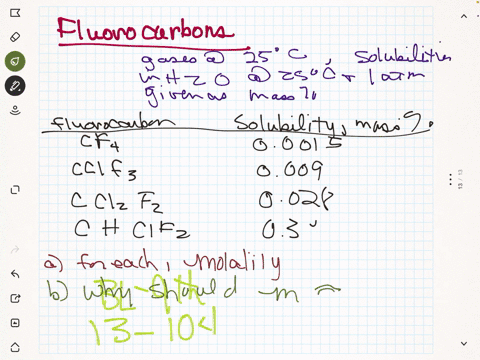 Fluorocarbons
gases @ 25°C, Solubilities
in H2O @ 25°C + 1 atm
given as mass %
fluorocarbon Solubility, mass %
CF4 0.0015
CClF3 0.009
CCl2F2 0.028
CHClF2 0.30
a) for each, molality
b) why should m ≈
BL
13-104
13 / 13